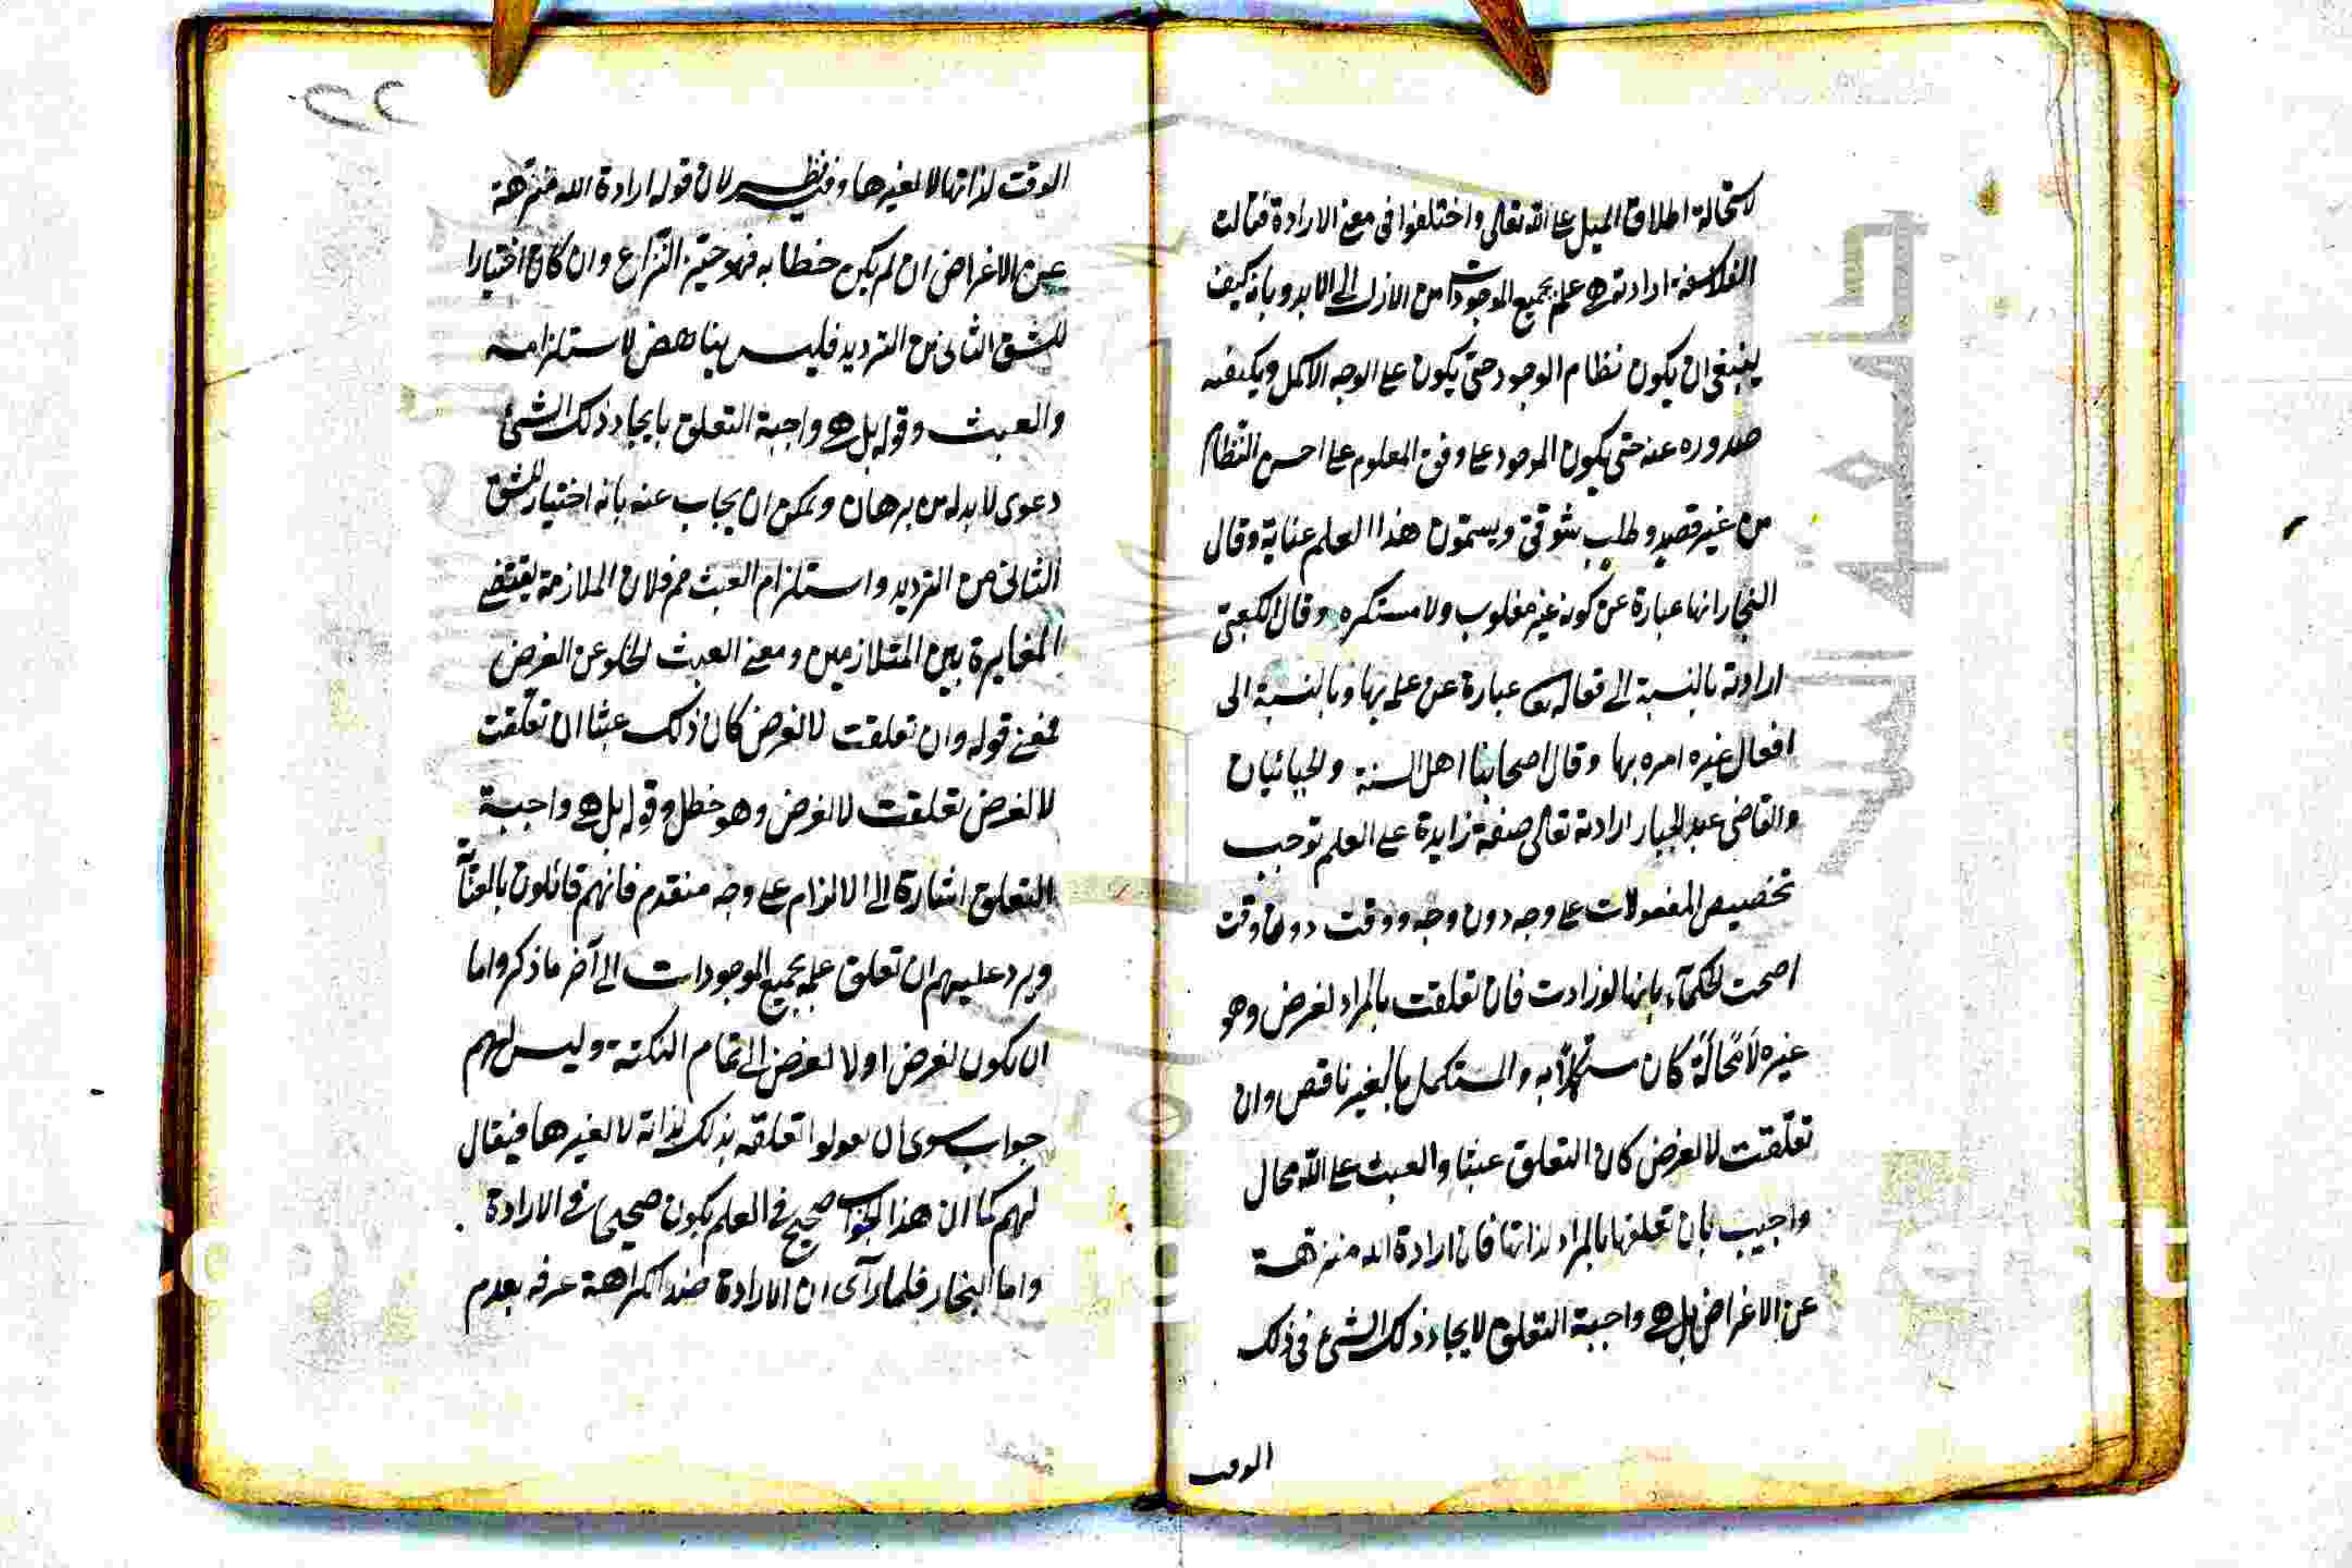 لاستحالة اطلاق الميل على الله تعالى واختلفوا فى معنى الارادة فقالت
الفلاسفة ارادته هى علمه بجميع الموجودات من الازل الى الابد وبانه كيف
ينبغى ان يكون نظام الوجود حتى يكون على الوجه الاكمل وبكيفية
صدوره عنه حتى يكون الموجود على وفق المعلوم على احسن النظام
من غير قصد وطلب شوقى ويسمون هذا العلم عناية وقال
النجار انها عبارة عن كونه غير مغلوب ولا مستكره وقال الكعبى
ارادته بالنسبة الى افعاله عبارة عن علمه بها وبالنسبة الى
افعال غيره امره بها وقال اصحابنا اهل السنة والجبائيان
والقاضى عبد الجبار ارادته تعالى صفة زايدة على العلم توجب
تخصيص المفعولات على وجه دون وجه ووقت دون وقت
احتجت الحكماء بانها لو زادت فان تعلقت بالمراد لغرض وهو
غيره لا محالة كان مستكملا به والمستكمل بالغير ناقص وان
تعلقت لا لغرض كان التعلق عبثا والعبث على الله محال
واجيب بان تعلقها بالمراد لذاتها فان ارادة الله منزهة
عن الاغراض بل هى واجبة التعلق لايجاد ذلك الشئ فى ذلك
الوقت
٢٢
الوقت لذاتها لا لغيرها وفيه نظر لان قوله ارادة الله منزهة
عن الاغراض ان لم يكن خطابه فهو حيز النزاع وان كان اختيارا
للشق الثانى من الترديد فليس بناهض لاستلزامه
والعبث وقوله بل هى واجبة التعلق بايجاد ذلك الشئ
دعوى لا بد له من برهان ويمكن ان يجاب عنه بانه اختيار للشق
الثانى من الترديد واستلزام العبث مم فلان الملازمة يقتضى
المغايرة بين المتلازمين ومعنى العبث الخلو عن الغرض
فمعنى قوله وان تعلقت لا لغرض كان ذلك عبثا ان تعلقت
لا لغرض تعلقت لا لغرض وهو خطل وقوله بل هى واجبة
التعلق اشارة الى الالزام على وجه متقدم فانهم قائلون بالعناية
ويرد عليهم ان تعلق علمه بجميع الموجودات الى آخر ما ذكر واما
ان يكون لغرض او لا لغرض الى تمام النكتة وليس لهم
جواب سوى ان يقولوا تعلقه بذلك لذاته لا لغيرها فيقال
لهم كما ان هذا الجواب صحيح فى العلم يكون صحيحا فى الارادة
واما النجار فلما رآى ان الارادة ضد الكراهة عرفه بعدم